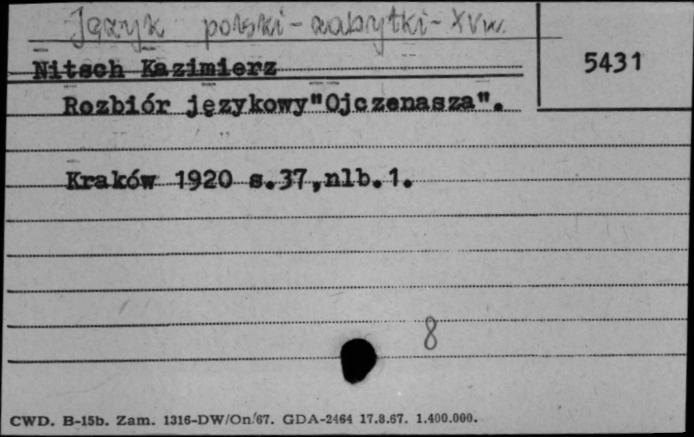 Język polski - zabytki - XV w.
Nitsch Kazimierz
5431
Rozbiór językowy"Ojczenasza".
Kraków 1920 s.37,nlb.1.
8
CWD. B-15b. Zam. 1316-DW/On/67. GDA-2464 17.8.67. 1.400.000.